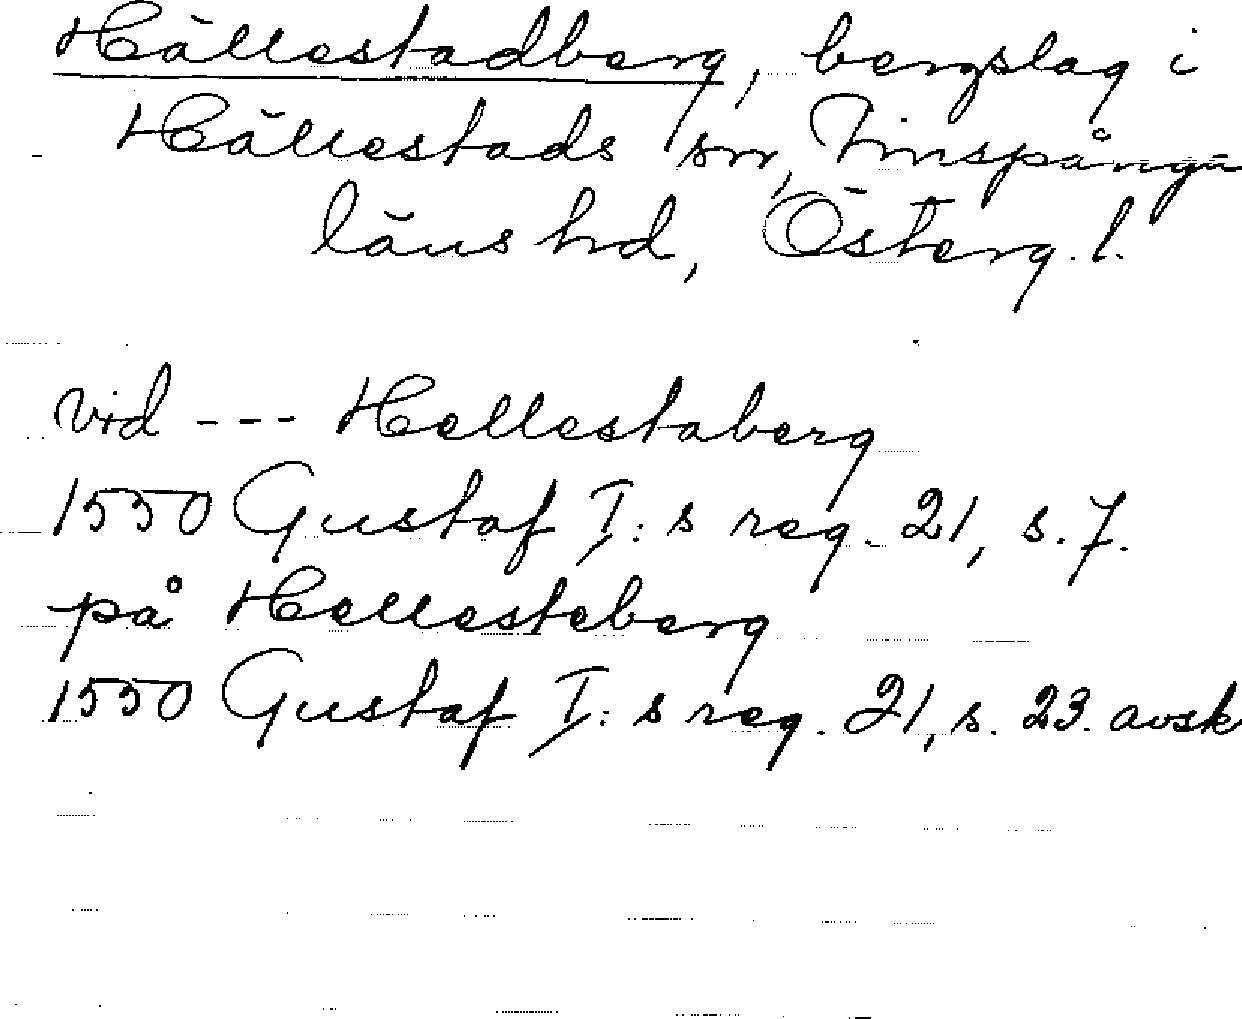 Hällestadberg, bergslag i
Hällestads sn, Finspånga
läns hd, Österg. l.
vid --- Hellestaberg
1550 Gustaf I:s reg. 21, s. 7.
på Hellesteberg
1550 Gustaf I:s reg. 21, s. 23. avsk